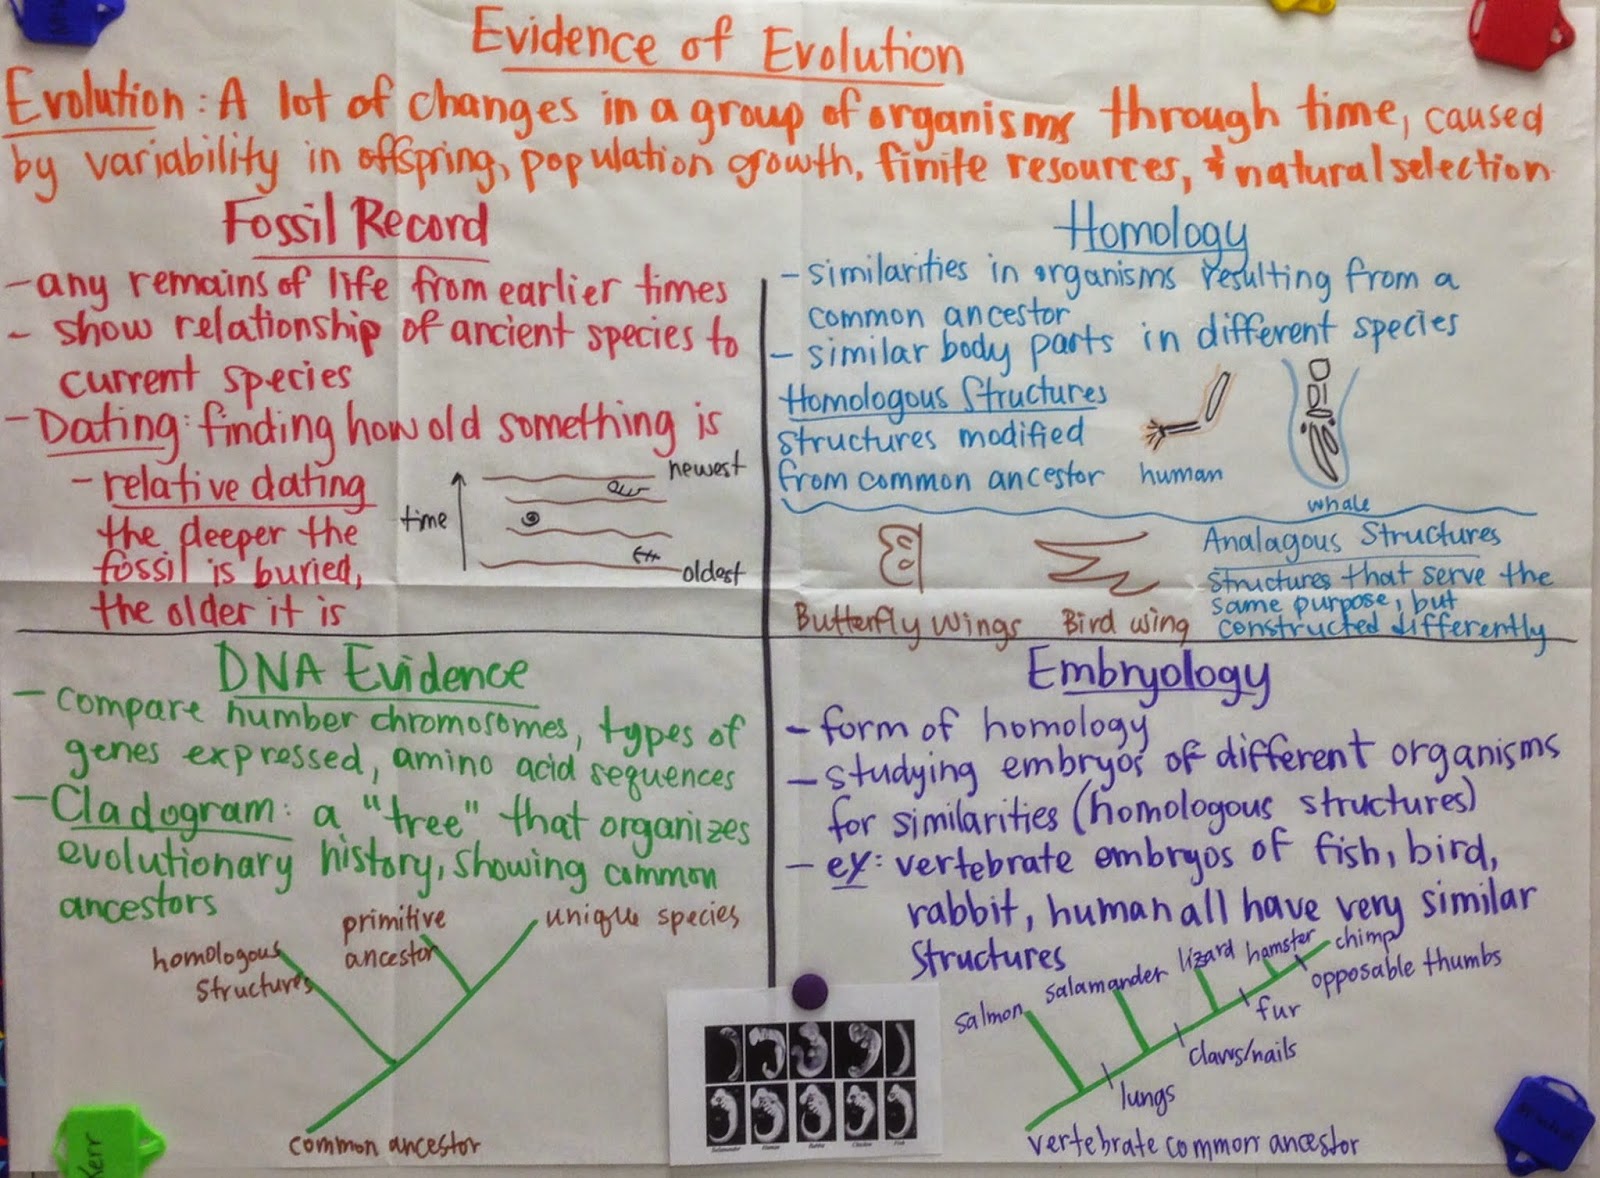 Evidence of Evolution
Evolution: A lot of changes in a group of organisms through time, caused
by variability in offspring, population growth, finite resources, & natural selection.
Fossil Record
- any remains of life from earlier times
- show relationship of ancient species to
current species
- Dating: finding how old something is
- relative dating
the deeper the
fossil is buried,
the older it is
time
newest
oldest
Homology
- similarities in organisms resulting from a
common ancestor
- similar body parts in different species
Homologous Structures
structures modified
from common ancestor
human
whale
Butterfly Wings
Bird wing
Analagous Structures
structures that serve the
same purpose, but
constructed differently
DNA Evidence
- compare number chromosomes, types of
genes expressed, amino acid sequences
- Cladogram: a "tree" that organizes
evolutionary history, showing common
ancestors
homologous
structures
primitive
ancestor
unique species
common ancestor
Embryology
- form of homology
- studying embryos of different organisms
for similarities (homologous structures)
- ex: vertebrate embryos of fish, bird,
rabbit, human all have very similar
structures
salmon
salamander
lizard
hamster
chimp
opposable thumbs
fur
claws/nails
lungs
vertebrate common ancestor
Kerr